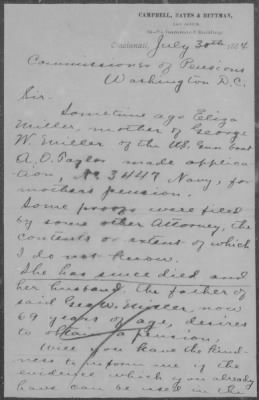 CAMPBELL, BATES & BETTMAN,
Cincinnati, July 30th 1884
Commissioner of Pensions
Washington D.C.
Sir.
Sometime ago Eliza
Miller, mother of George
W. Miller of the U.S. Gun boat
A. O. Taylor made applica-
tion, No 3447 Navy, for
mothers pension.
Some proofs were filed
by some other Attorney, the
contents or extent of which
I do not know.
She has since died and
her husband the father of
said Geo W. Miller, now
69 years of age, desires
to obtain a pension.
Will you have the kind-
ness to inform me if the
evidence which you already
have can be used in the